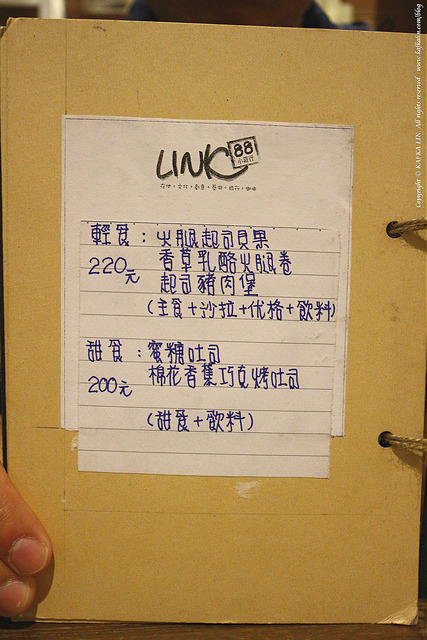 LINK
88
小旅行
輕食：火腿起司貝果
220元 香草乳酪火腿卷
起司豬肉堡
(主食+沙拉+优格+飲料)
甜食：蜜糖吐司
200元 棉花香蕉巧克烤吐司
(甜食+飲料)
Copyright © KAFKA LIN. All rights reserved www.kafkalin.com/blog